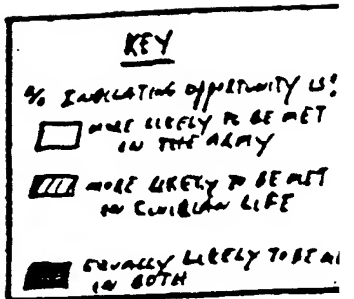 KEY
% INDICATING OPPORTUNITY IS:
MORE LIKELY TO BE MET
IN THE ARMY
MORE LIKELY TO BE MET
IN CIVILIAN LIFE
EQUALLY LIKELY TO BE M
IN BOTH